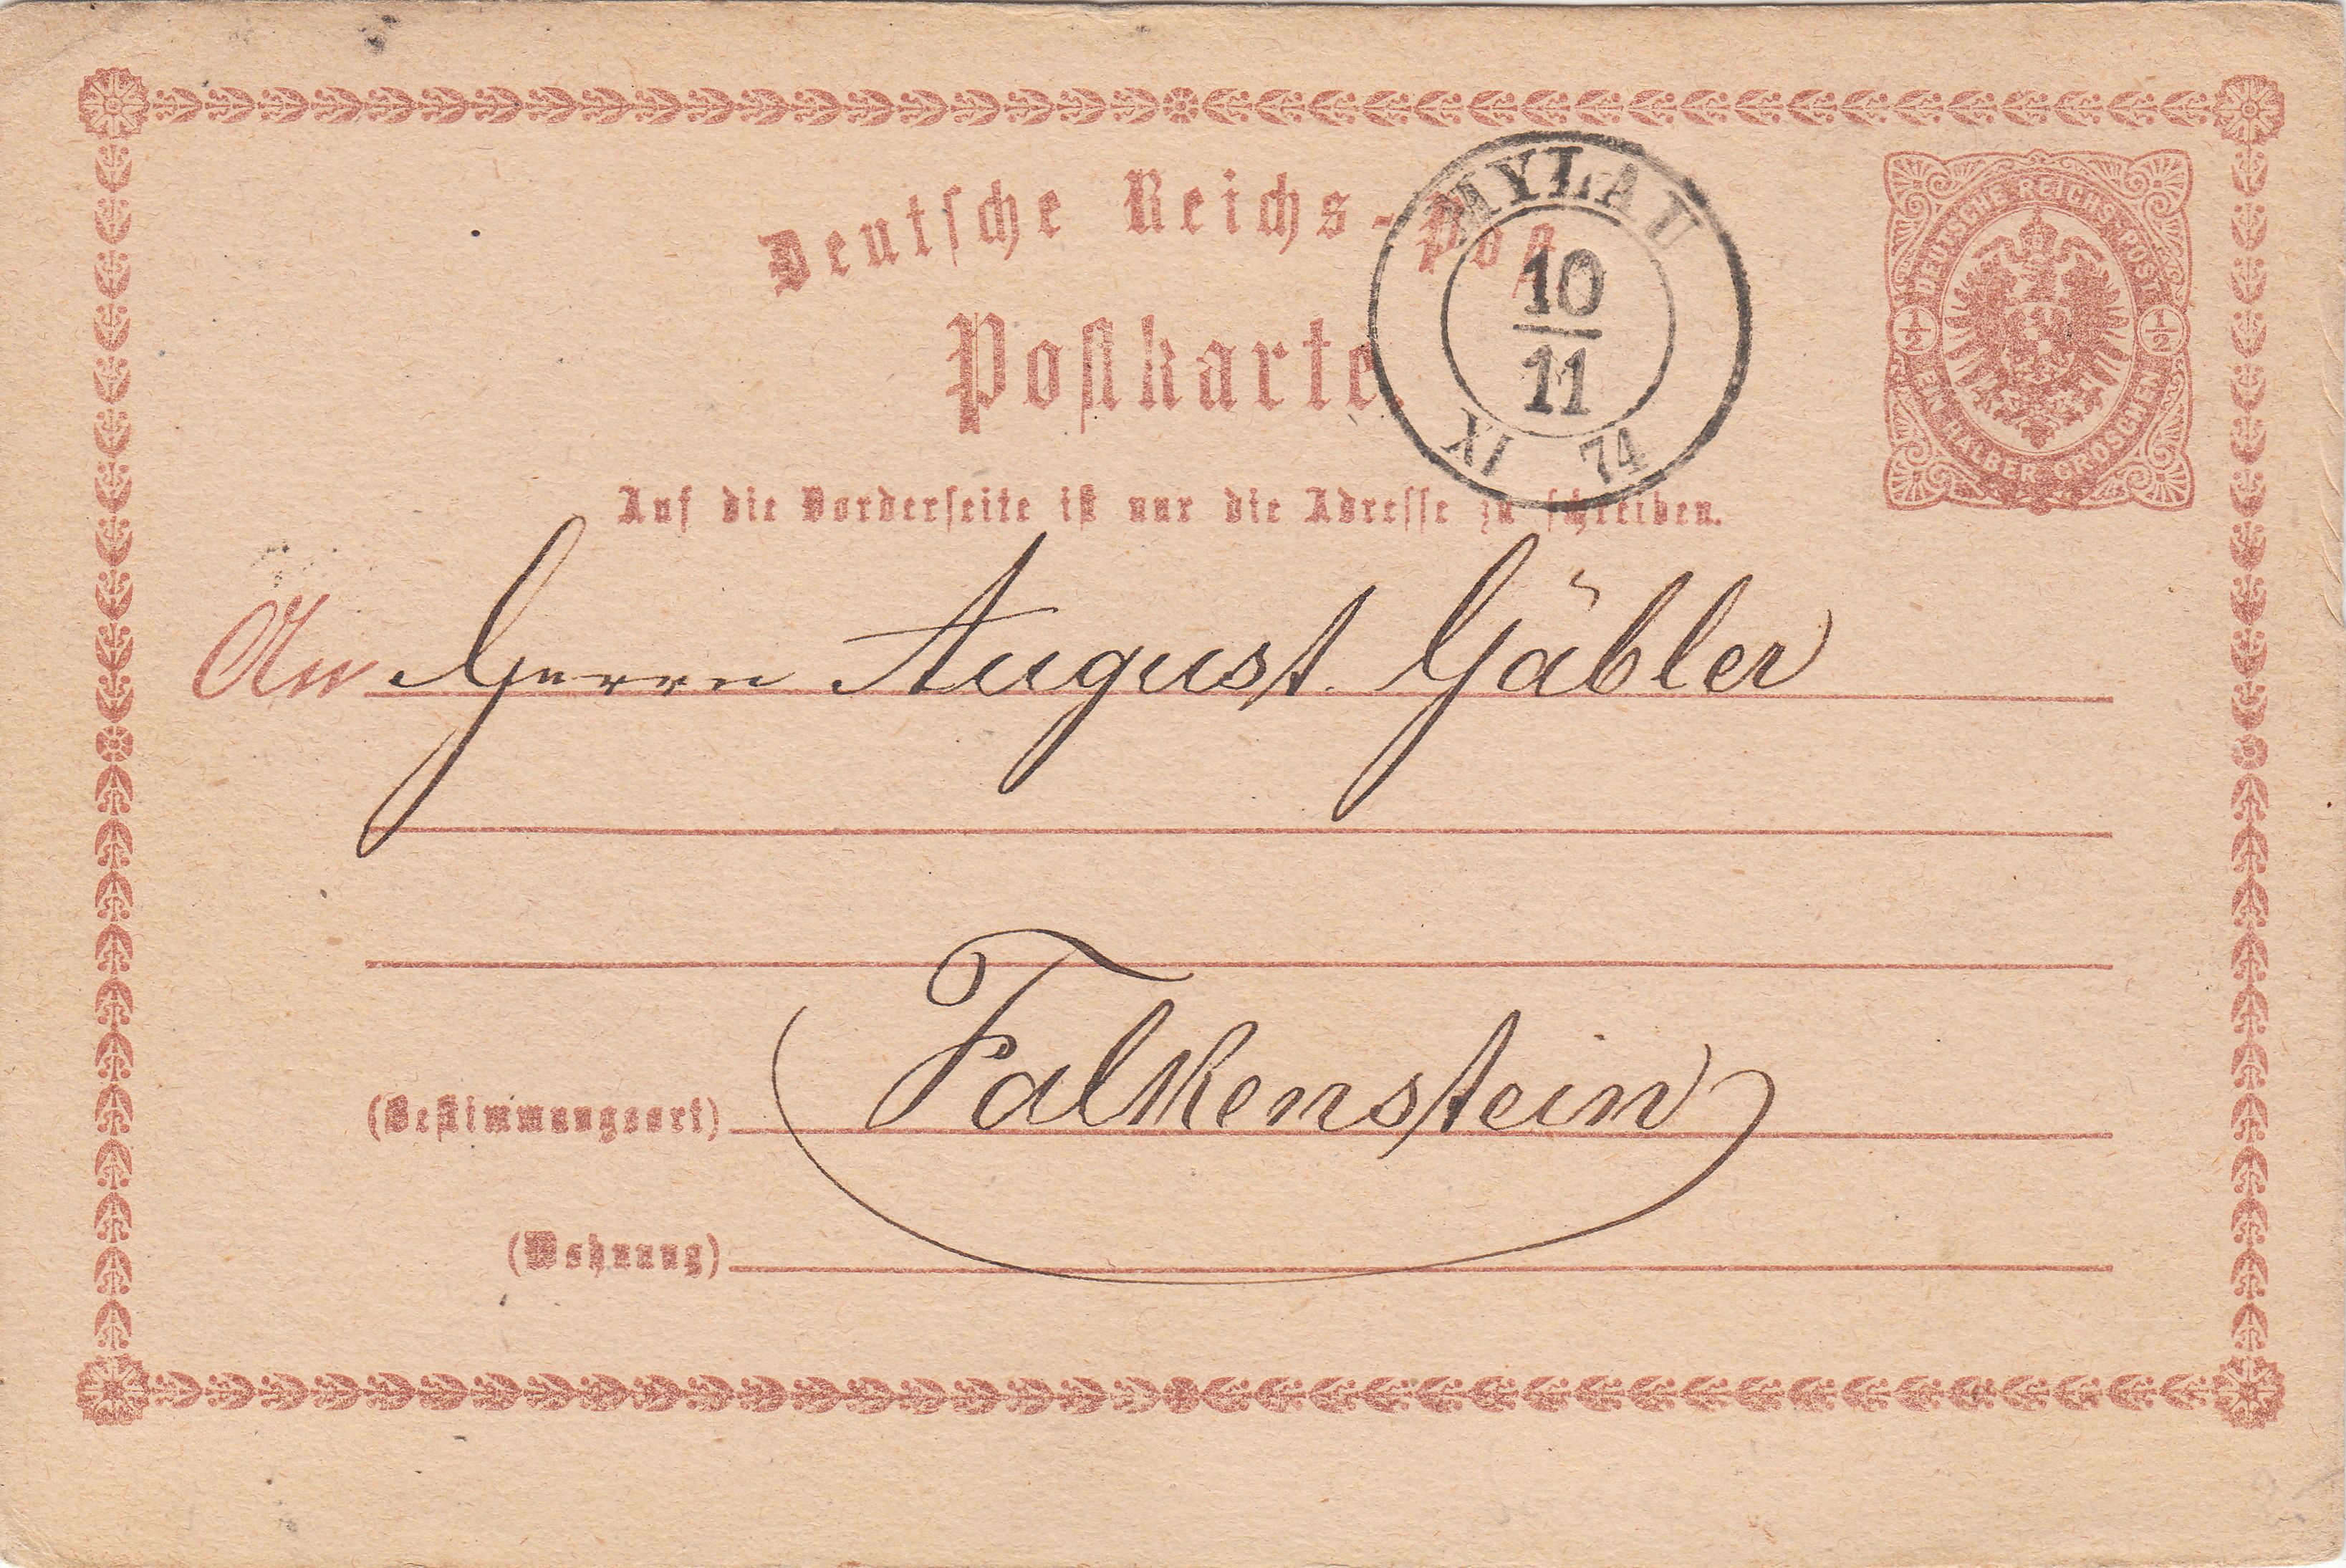 Deutsche Reichs-Post
MYLAU
10
11
IX 74
DEUTSCHE REICHS-POST
1/2 1/2
EIN HALBER GROSCHEN
Postkarte.
Auf die Vorderseite ist nur die Adresse zu schreiben.
An Herrn August Gäbler
(Bestimmungsort) Falkenstein
(Wohnung)